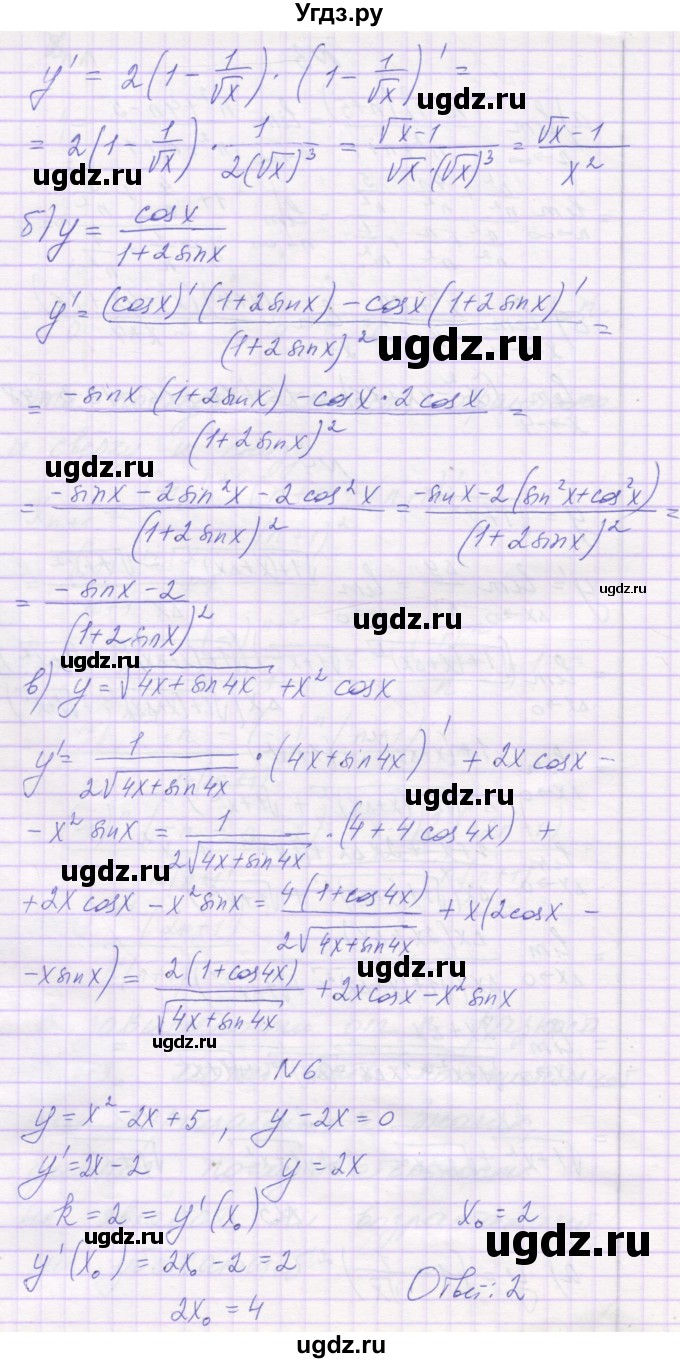 Угдз.ру
y' = 2(1 - 1/√x) · (1 - 1/√x)' =
ugdz.ru
= 2(1 - 1/√x) · 1/(2(√x)³) = (√x - 1)/(√x · (√x)³) = (√x - 1)/x²
ugdz.ru
б) y = cosx/(1 + 2sinx)
y' = ((cosx)'(1 + 2sinx) - cosx(1 + 2sinx)')/(1 + 2sinx)² =
ugdz.ru
= (-sinx(1 + 2sinx) - cosx · 2cosx)/(1 + 2sinx)² =
ugdz.ru
= (-sinx - 2sin²x - 2cos²x)/(1 + 2sinx)² = (-sinx - 2(sin²x + cos²x))/(1 + 2sinx)² =
ugdz.ru
= (-sinx - 2)/(1 + 2sinx)²
ugdz.ru
ugdz.ru
в) y = √(4x + sin4x) + x² cosx
y' = 1/(2√(4x + sin4x)) · (4x + sin4x)' + 2x cosx -
ugdz.ru
- x² sinx = 1/(2√(4x + sin4x)) · (4 + 4cos4x) +
ugdz.ru
+ 2x cosx - x² sinx = 4(1 + cos4x)/(2√(4x + sin4x)) + x(2cosx -
ugdz.ru
- x sinx) = 2(1 + cos4x)/√(4x + sin4x) + 2x cosx - x² sinx
ugdz.ru
N 6
y = x² - 2x + 5, y - 2x = 0
y' = 2x - 2 y = 2x
k = 2 = y'(x₀) x₀ = 2
ugdz.ru
ugdz.ru
y'(x₀) = 2x₀ - 2 = 2
Ответ: 2
2x₀ = 4
ugdz.ru